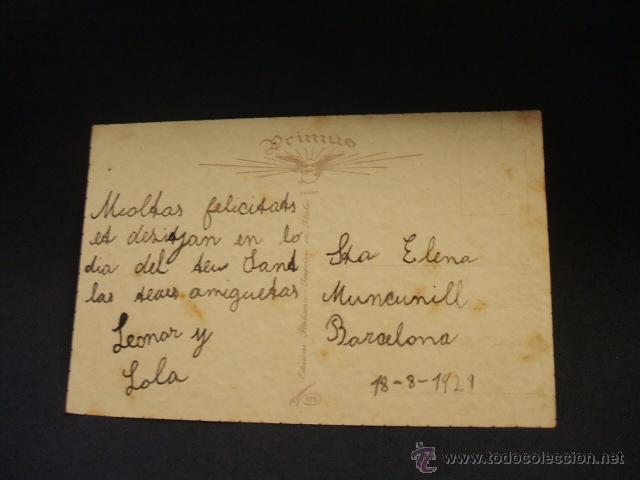 Primus
Moltas felicitats
et desitjan en lo
dia del teu Sant
las teves amiguetas
Leonor y
Lola
Sta Elena
Muncunill
Barcelona
18-8-1921
www.todocoleccion.net